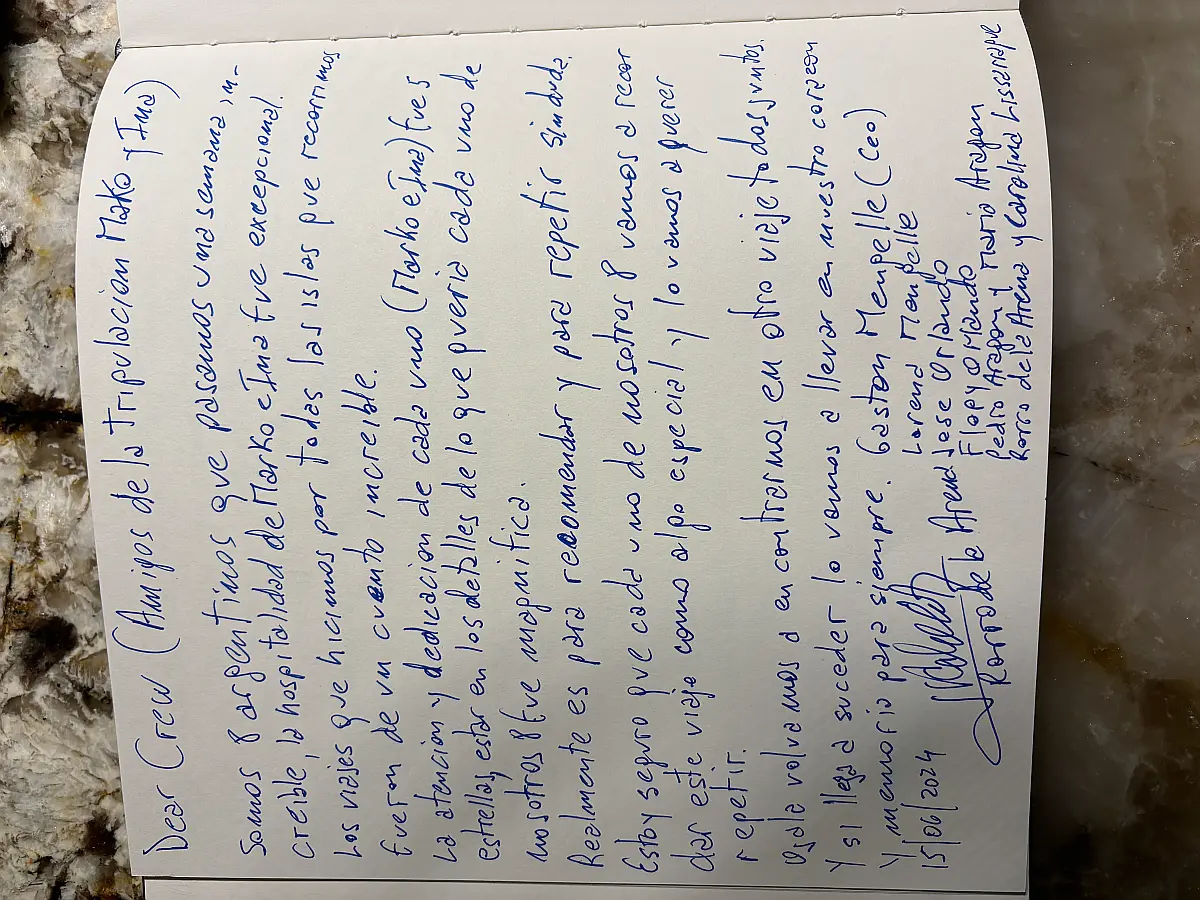 Dear Crew (Amigos de la tripulacion Mako y Ima)
Somos 8 argentinos que pasamos una semana in-
creible, la hospitalidad de Marko e Ima fue excepcional.
Los viajes que hicimos por todas las islas que recorrimos
fueron de un cuento increible.
La atencion y dedicacion de cada uno (Marko e Ima) fue 5
estrellas, estar en los detalles de lo que queria cada uno de
nosotros 8 fue magnifica.
Realmente es para recomendar y para repetir sin duda.
Estoy seguro que cada uno de nosotros 8 vamos a recor
dar este viaje como algo especial y lo vamos a querer
repetir.
Ojala volvamos a encontrarnos em otro viaje todos juntos.
Y si llega a suceder lo vamos a llevar en nuestro corazon
Y memoria para siempre. Gaston Mengelle (Ceo)
Lorena Mengelle
Jose Orlando
Flopy Orlando
Pedro Aragon y Maria Aragon
Rorro de la Arena y Carolina Lissarrague
15/06/2024
Rorro de la Arena